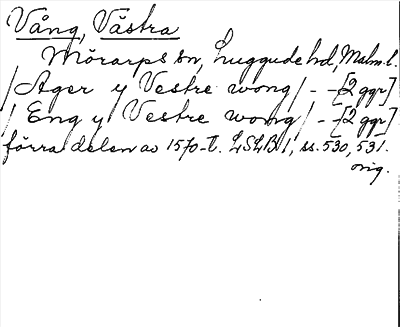 Vång, Västra
Mörarps sn, Luggude hd, Malm. l.
/Ager y Vestre wong/ - -[2 ggr]
/Eng y Vestre wong/ - -[2 ggr]
förra delen av 1570-t. LSLB 1, ss. 530, 531.
orig.